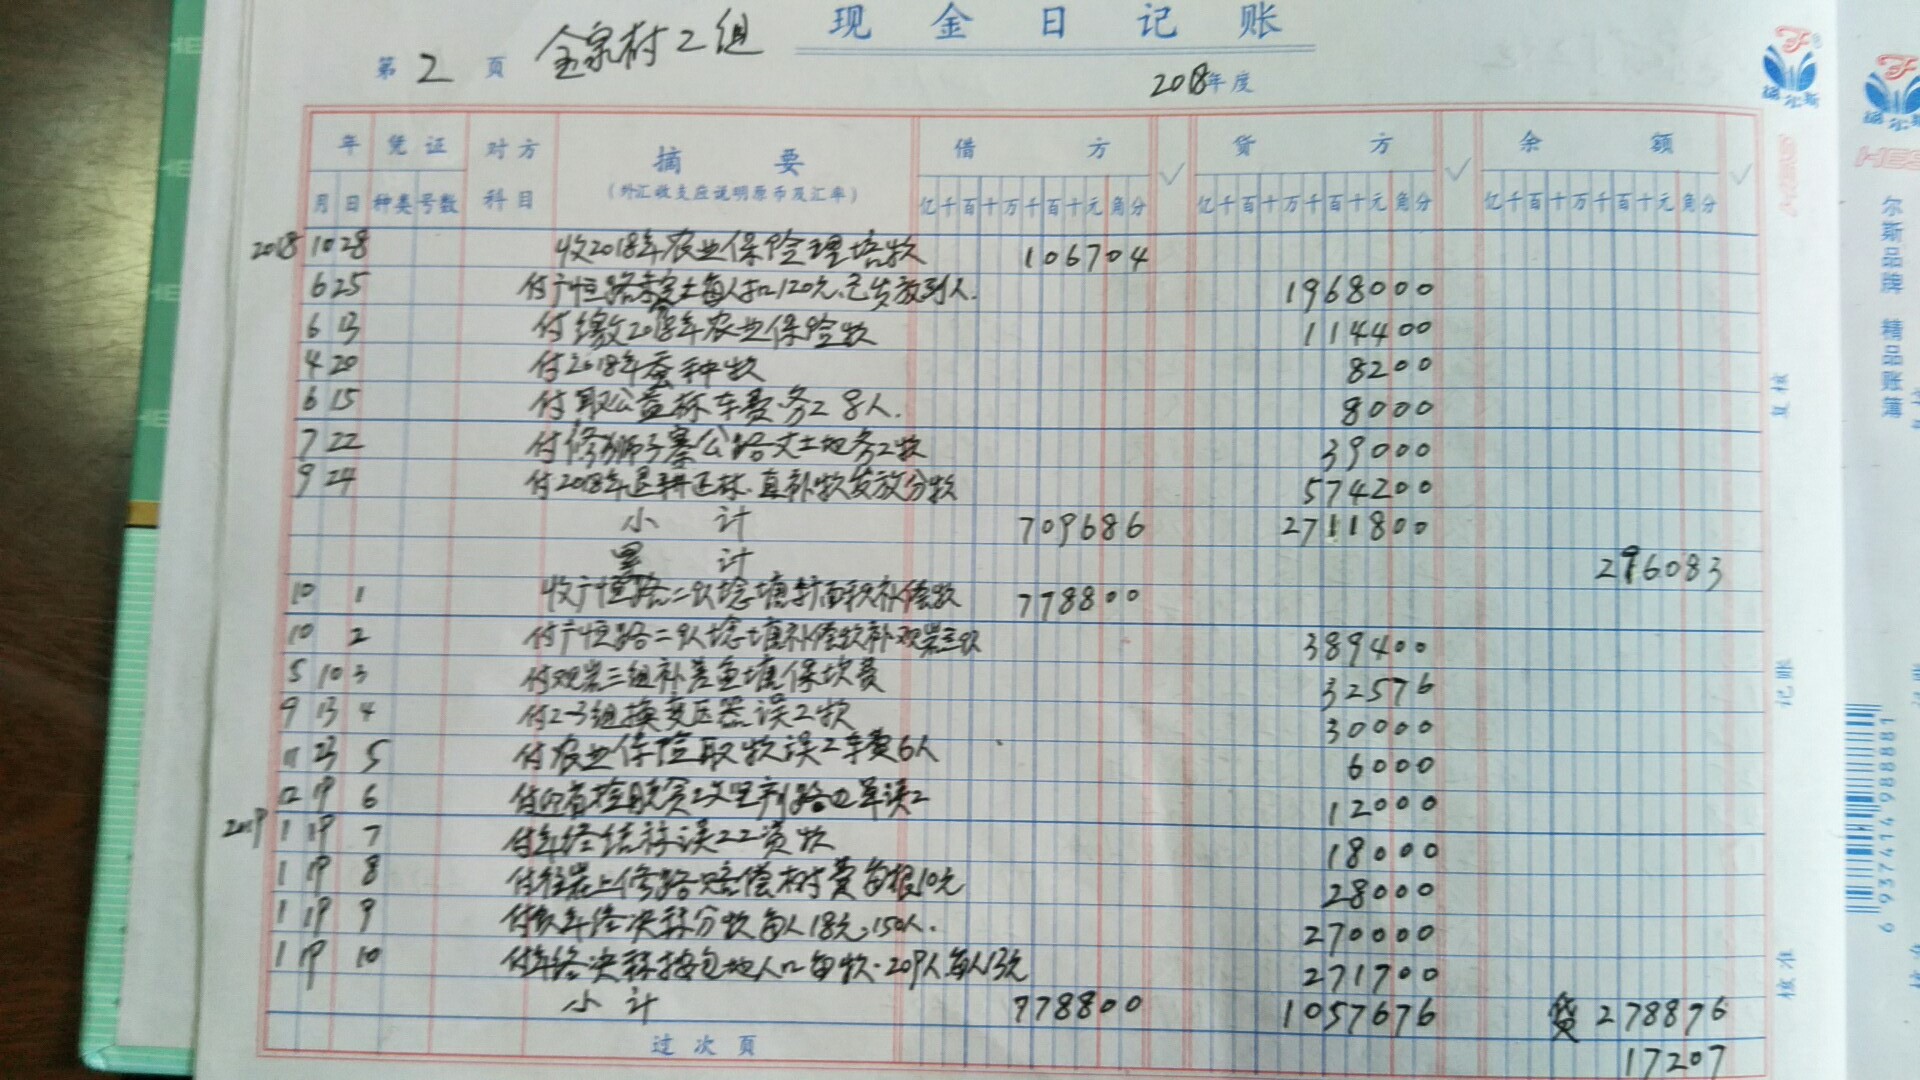 现金日记账
第2页 金家村2组
2018年度
年 凭证 对方 摘要 借方 ✓ 贷方 ✓ 余额 ✓
月 日 种类 号数 科目 (外汇收支应说明原币及汇率) 亿千百十万千百十元角分 亿千百十万千百十元角分 亿千百十万千百十元角分
2018 10 28 收2018年农业保险理培款 106704
6 25 付广恒路弃土每人扣120元,已发放到人. 1968000
6 13 付缴2018年农业保险款 114400
4 20 付2018年蚕种款 8200
6 15 付取公益林车费.务工8人. 8000
7 22 付修狮子寨公路丈土地务工款 39000
9 24 付2018年退耕还林.直补款发放分款 574200
小计 709686 2711800
累计 296083
10 1 收广恒路二队埝塘面积补偿款 778800
10 2 付广恒路二队埝塘补偿款补观岩三队 389400
5 10 3 付观岩三组补差鱼塘保坎费 32576
9 13 4 付2-3组换变压器误工款 30000
11 23 5 付农业保险取款误工车费6人 6000
12 19 6 付 误工 12000
2019 1 19 7 付年终结算误工工资款 18000
1 19 8 付岩上修路赔偿树费每根10元 28000
1 19 9 付年终决算分款每人18元,150人. 270000
1 19 10 付年终决算按包地人口分款.209人每人13元 271700
小计 778800 1057676 贷 278876
过次页 17207
复核
记账
核准
福尔斯
福尔斯
尔斯品牌 精品账簿
6937414988881